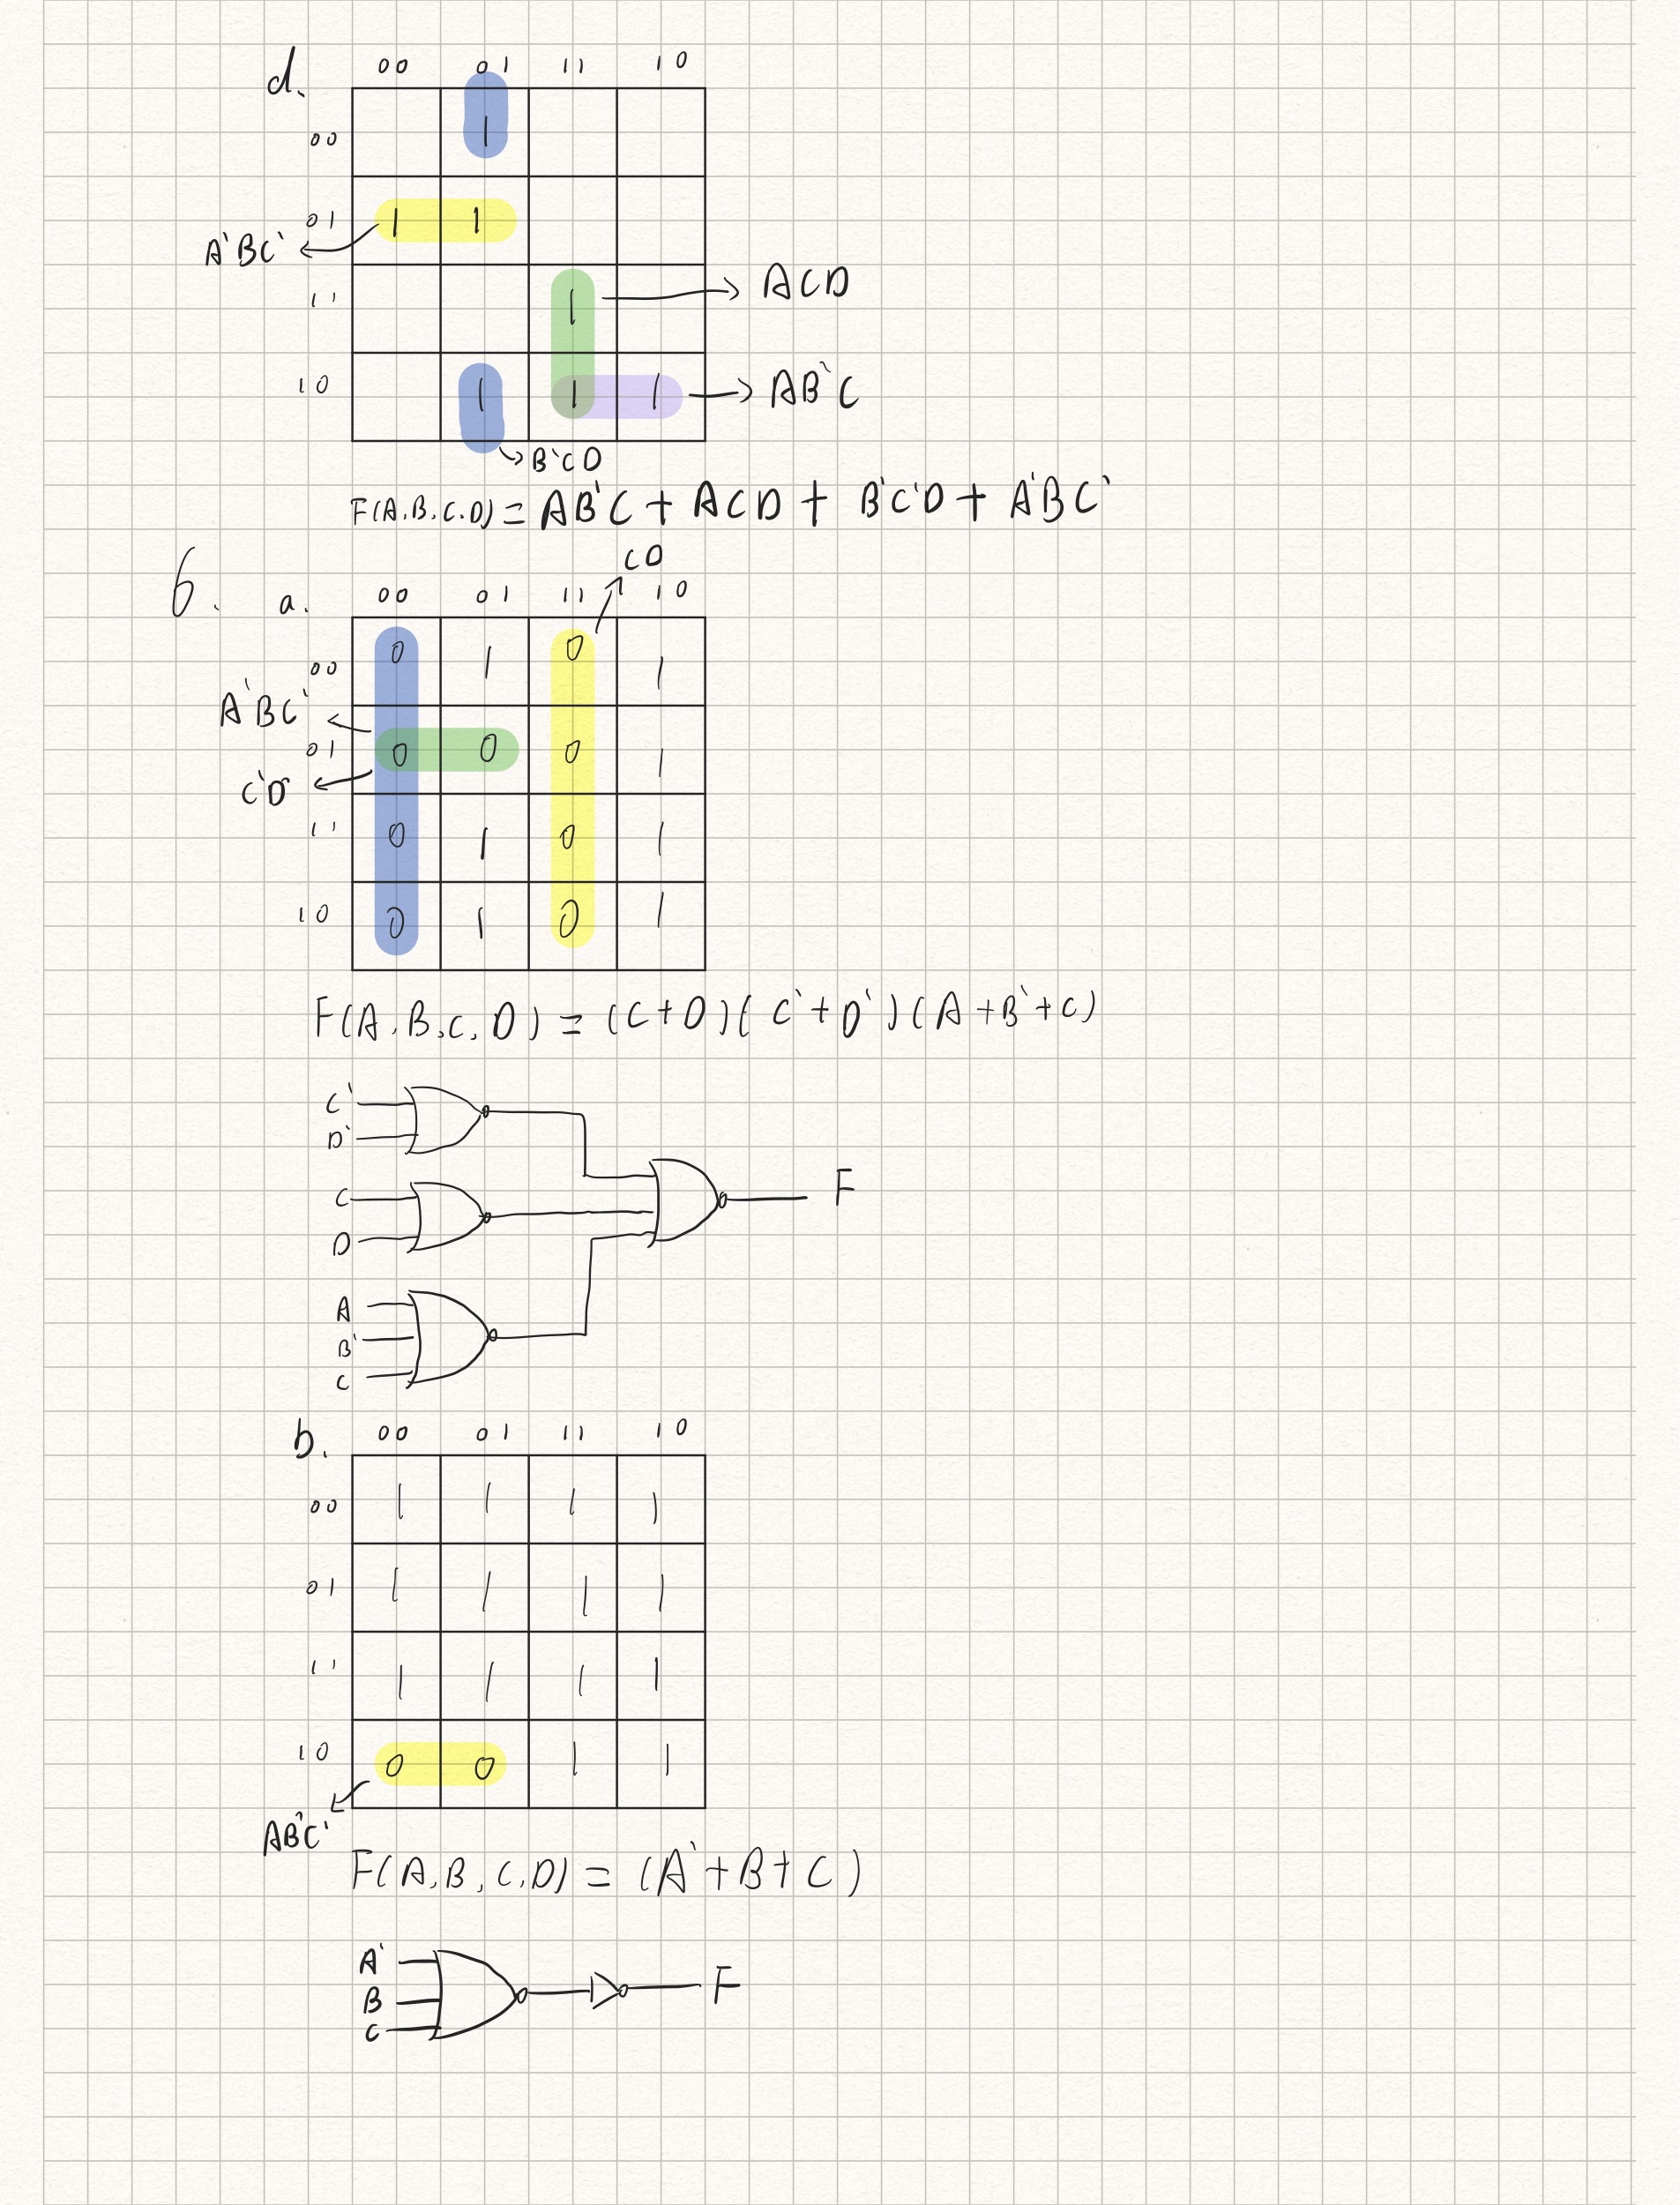 d.
00 01 11 10
00 1
01 1 1
A'BC'
11 1
ACD
10 1 1 1
AB'C
B'CD
F(A,B,C,D) = AB'C + ACD + B'C'D + A'BC'
6. a.
CD
00 01 11 10
00 0 1 0 1
A'BC'
01 0 0 0 1
C'D'
11 0 1 0 1
10 0 1 0 1
F(A,B,C,D) = (C+D)(C'+D')(A+B'+C)
C'
D'
C
D
F
A
B'
C
b.
00 01 11 10
00 1 1 1 1
01 1 1 1 1
11 1 1 1 1
10 0 0 1 1
AB'C'
F(A,B,C,D) = (A'+B+C)
A'
B
C
F